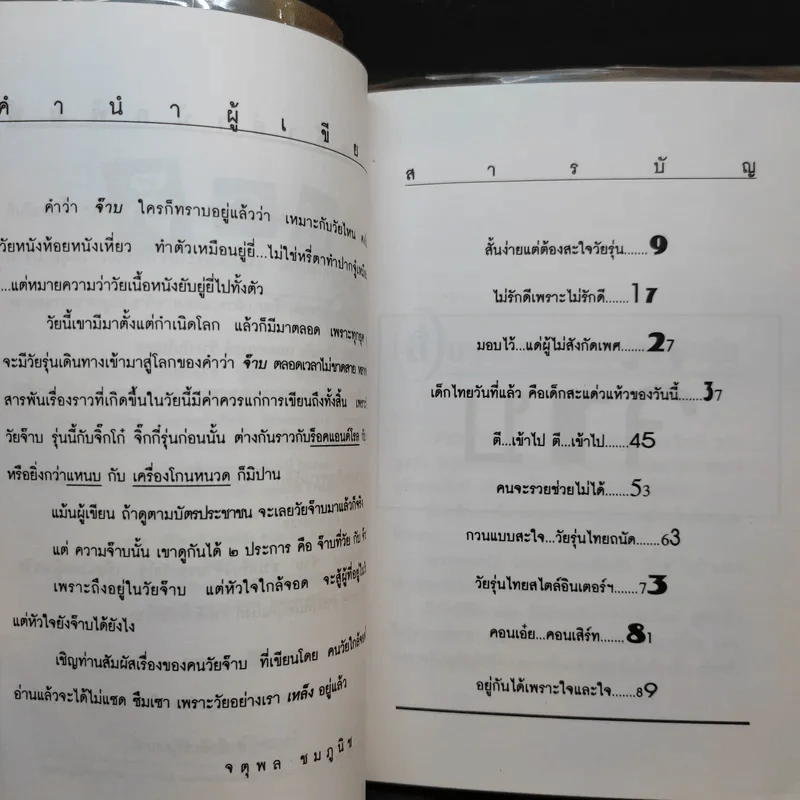 คำนำผู้เขีย
คำว่า จ๊าบ ใครก็ทราบอยู่แล้วว่า เหมาะกับวัยไหน
วัยหนังห้อยหนังเหี่ยว ทำตัวเหมือนอยู่ยี่...ไม่ใช่หรี่ตาทำปากจู๋
...แต่หมายความว่าวัยเนื้อหนังยับยู่ยี่ไปทั้งตัว
วัยนี้เขามีมาตั้งแต่กำเนิดโลก แล้วก็มีมาตลอด เพราะทุกยุค
จะมีวัยรุ่นเดินทางเข้ามาสู่โลกของคำว่า จ๊าบ ตลอดเวลาไม่ขาดสาย
สารพันเรื่องราวที่เกิดขึ้นในวัยนี้มีค่าควรแก่การเขียนถึงทั้งสิ้น
วัยจ๊าบ รุ่นนี้กับจิ๊กโก๋ จิ๊กกี๋รุ่นก่อนนั้น ต่างกันราวกับร็อคแอนด์โรล
หรือยิ่งกว่าแหนบ กับ เครื่องโกนหนวด ก็มิปาน
แม้นผู้เขียน ถ้าดูตามบัตรประชาชน จะเลยวัยจ๊าบมาแล้วก็จริง
แต่ ความจ๊าบนั้น เขาดูกันได้ ๒ ประการ คือ จ๊าบที่วัย กับ
เพราะถึงอยู่ในวัยจ๊าบ แต่หัวใจใกล้จอด จะสู้ผู้ที่อยู่
แต่หัวใจยังจ๊าบได้ยังไง
เชิญท่านสัมผัสเรื่องของคนวัยจ๊าบ ที่เขียนโดย คนวัยใกล้
อ่านแล้วจะได้ไม่แซด ซึมเซา เพราะวัยอย่างเรา เหล็ง อยู่แล้ว
จตุพล ชมภูนิช
สารบัญ
สั้นง่ายแต่ต้องสะใจวัยรุ่น.......9
ไม่รักดีเพราะไม่รักดี.......17
มอบไว้...แด่ผู้ไม่สังกัดเพศ.......27
เด็กไทยวันที่แล้ว คือเด็กสะแด่วแห้วของวันนี้.......37
ตี...เข้าไป ตี...เข้าไป.......45
คนจะรวยช่วยไม่ได้.......53
กวนแบบสะใจ...วัยรุ่นไทยถนัด.......63
วัยรุ่นไทยสไตล์อินเตอร์ฯ.......73
คอนเอ๋ย...คอนเสิร์ท.......81
อยู่กันได้เพราะใจและใจ.......89